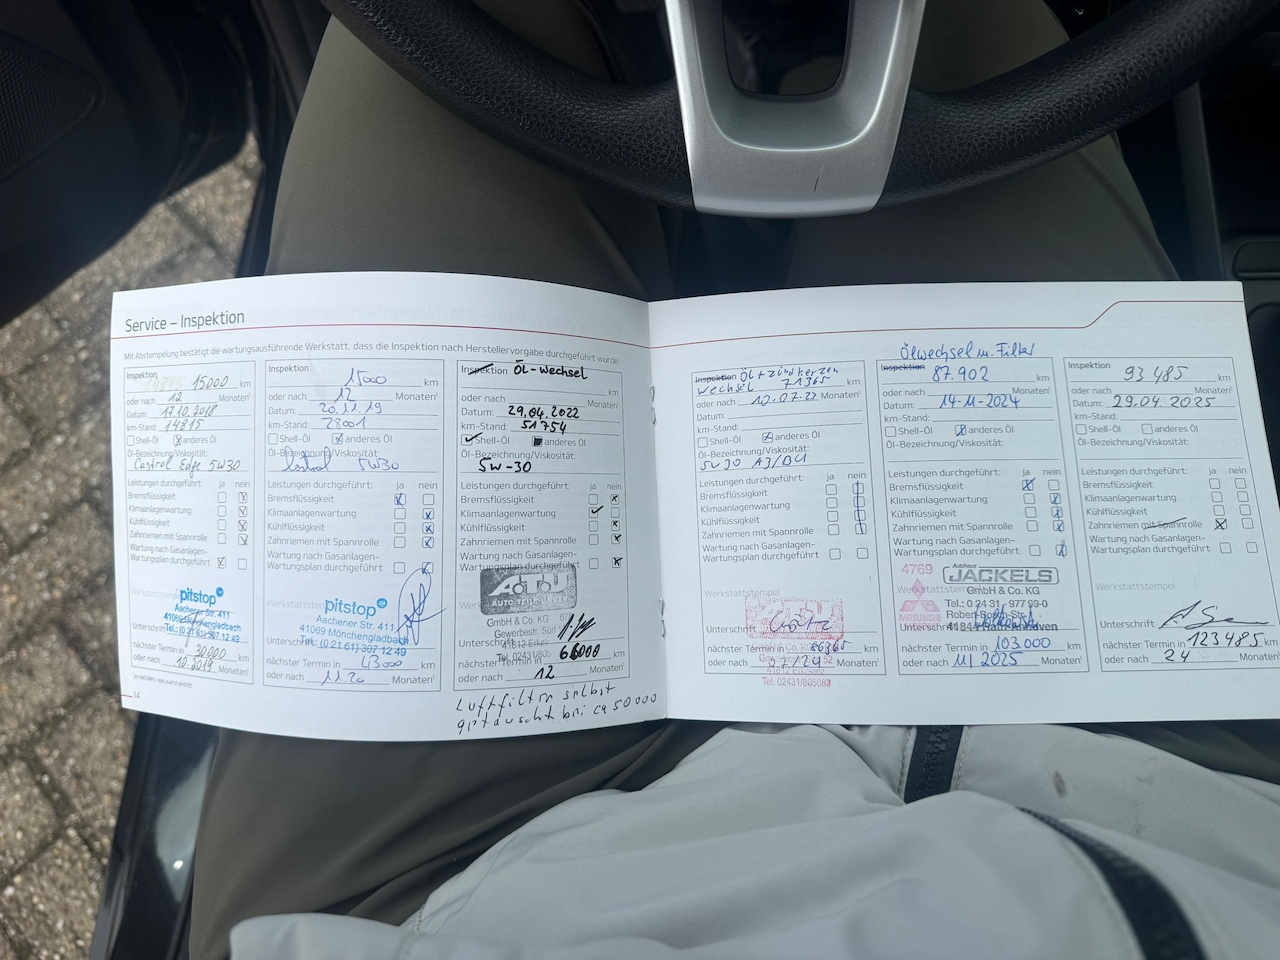 Service – Inspektion
Mit Abstempelung bestätigt die wartungsausführende Werkstatt, dass die Inspektion nach Herstellervorgabe durchgeführt wurde.
Inspektion
15000 km
oder nach 12 Monaten¹
Datum: 17.10.2018
km-Stand: 14815
Shell-Öl anderes Öl
Öl-Bezeichnung/Viskosität:
Castrol Edge 5W30
Leistungen durchgeführt: ja nein
Bremsflüssigkeit
Klimaanlagenwartung
Kühlflüssigkeit
Zahnriemen mit Spannrolle
Wartung nach Gasanlagen-
Wartungsplan durchgeführt
pitstop
Aachener Str. 411
41069 Mönchengladbach
Tel.: (0 21 61) 307 12 49
Unterschrift
nächster Termin in¹ 30000 km
oder nach 10.2019 Monaten¹
14
Inspektion
15000 km
oder nach 12 Monaten¹
Datum: 20.11.19
km-Stand: 28001
Shell-Öl anderes Öl
Öl-Bezeichnung/Viskosität:
Castrol 5W30
Leistungen durchgeführt: ja nein
Bremsflüssigkeit
Klimaanlagenwartung
Kühlflüssigkeit
Zahnriemen mit Spannrolle
Wartung nach Gasanlagen-
Wartungsplan durchgeführt
pitstop
Aachener Str. 411
41069 Mönchengladbach
Tel.: (0 21 61) 307 12 49
Unterschrift
nächster Termin in¹ 43000 km
oder nach 11.20 Monaten¹
Inspektion Öl-Wechsel
km
oder nach Monaten¹
Datum: 29.04.2022
km-Stand: 51754
Shell-Öl anderes Öl
Öl-Bezeichnung/Viskosität:
5W-30
Leistungen durchgeführt: ja nein
Bremsflüssigkeit
Klimaanlagenwartung
Kühlflüssigkeit
Zahnriemen mit Spannrolle
Wartung nach Gasanlagen-
Wartungsplan durchgeführt
A.T.U
GmbH & Co. KG
Gewerbestr. Süd
Unterschrift
nächster Termin in¹ 66000 km
oder nach 12 Monaten¹
Luftfiltern selbst
getauscht bei ca 50 000
Inspektion Öl + Zündkerzen
Wechsel 71365 km
oder nach 10.07.23 Monaten¹
Datum:
km-Stand:
Shell-Öl anderes Öl
Öl-Bezeichnung/Viskosität:
5W30 A3/B4
Leistungen durchgeführt: ja nein
Bremsflüssigkeit
Klimaanlagenwartung
Kühlflüssigkeit
Zahnriemen mit Spannrolle
Wartung nach Gasanlagen-
Wartungsplan durchgeführt
Werkstattstempel
Unterschrift
nächster Termin in¹ 86365 km
oder nach 07/24 Monaten¹
Tel. 02431/805083
Ölwechsel m. Filter
Inspektion
87.902 km
oder nach Monaten¹
Datum: 14-11-2024
km-Stand:
Shell-Öl anderes Öl
Öl-Bezeichnung/Viskosität:
Leistungen durchgeführt: ja nein
Bremsflüssigkeit
Klimaanlagenwartung
Kühlflüssigkeit
Zahnriemen mit Spannrolle
Wartung nach Gasanlagen-
Wartungsplan durchgeführt
4769 Autohaus JACKELS
GmbH & Co. KG
MITSUBISHI Tel.: 0 24 31 - 977 99-0
Unterschrift
nächster Termin in¹ 103.000 km
oder nach 11/2025 Monaten¹
Inspektion
93 485 km
oder nach Monaten¹
Datum: 29.04.2025
km-Stand:
Shell-Öl anderes Öl
Öl-Bezeichnung/Viskosität:
Leistungen durchgeführt: ja nein
Bremsflüssigkeit
Klimaanlagenwartung
Kühlflüssigkeit
Zahnriemen mit Spannrolle
Wartung nach Gasanlagen-
Wartungsplan durchgeführt
Werkstattstempel
Unterschrift
nächster Termin in¹ 123485 km
oder nach 24 Monaten¹